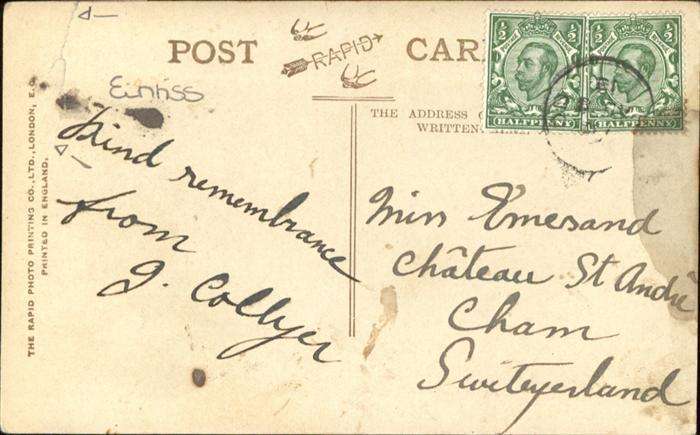 POST CAR
RAPID
Kind remembrance
from
J. Collyer
THE ADDRESS
WRITTEN
½ ½
½ ½
HALFPENNY HALFPENNY
Miss Emerand
Château St Andre
Cham
Switzerland
THE RAPID PHOTO PRINTING CO., LTD., LONDON, E.C.
PRINTED IN ENGLAND.